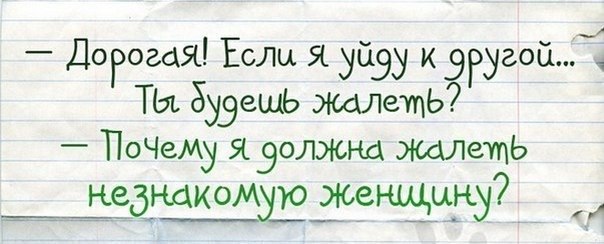 — Дорогая! Если я уйду к другой...
Ты будешь жалеть?
— Почему я должна жалеть
незнакомую женщину?